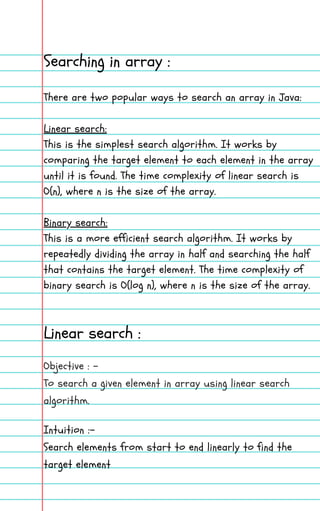 Searching in array :
There are two popular ways to search an array in Java:
Linear search:
This is the simplest search algorithm. It works by
comparing the target element to each element in the array
until it is found. The time complexity of linear search is
O(n), where n is the size of the array.
Binary search:
This is a more efficient search algorithm. It works by
repeatedly dividing the array in half and searching the half
that contains the target element. The time complexity of
binary search is O(log n), where n is the size of the array.
Linear search :
Objective : -
To search a given element in array using linear search
algorithm.
Intuition :-
Search elements from start to end linearly to find the
target element